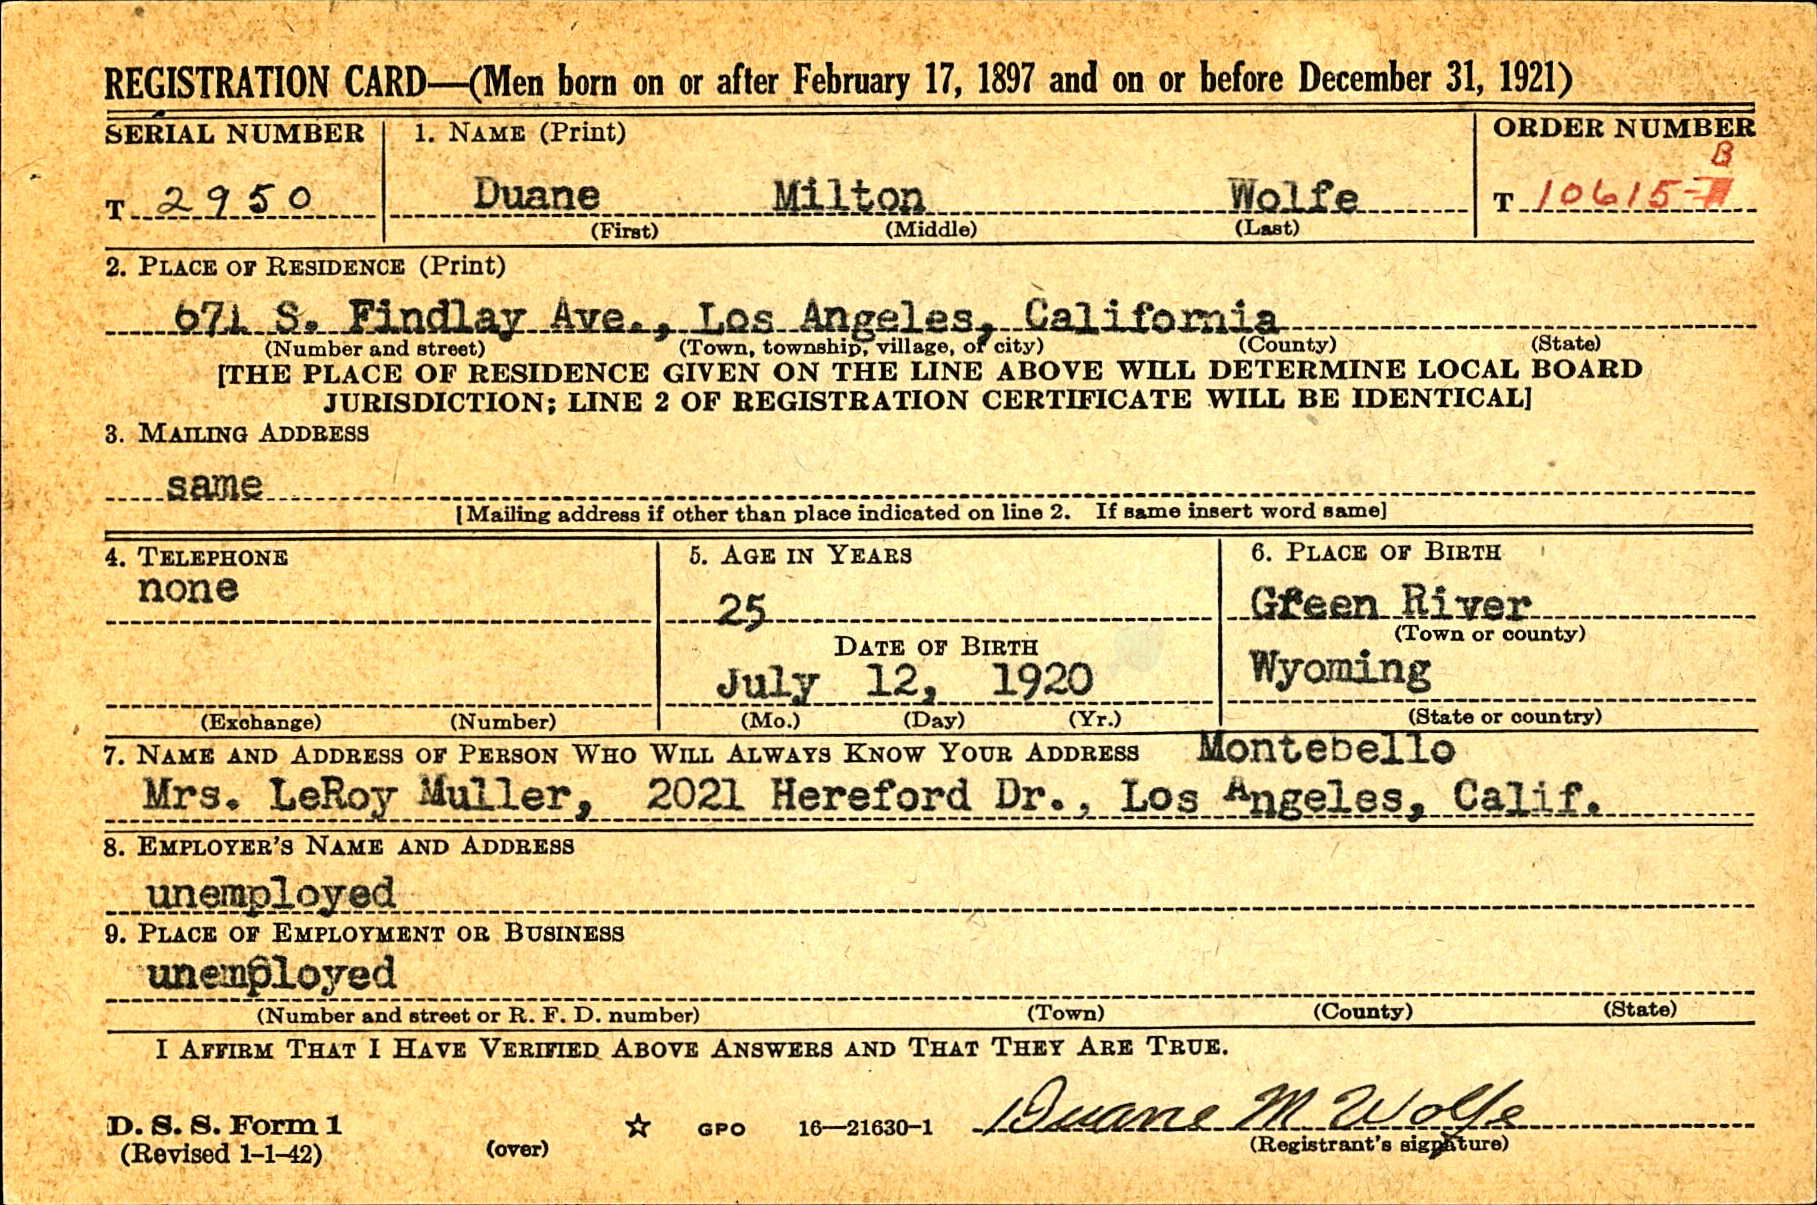 REGISTRATION CARD—(Men born on or after February 17, 1897 and on or before December 31, 1921)
SERIAL NUMBER 1. NAME (Print) ORDER NUMBER
B
T 2950 Duane Milton Wolfe T 10615-
(First) (Middle) (Last)
2. PLACE OF RESIDENCE (Print)
671 S. Findlay Ave., Los Angeles, California
(Number and street) (Town, township, village, or city) (County) (State)
[THE PLACE OF RESIDENCE GIVEN ON THE LINE ABOVE WILL DETERMINE LOCAL BOARD
JURISDICTION; LINE 2 OF REGISTRATION CERTIFICATE WILL BE IDENTICAL]
3. MAILING ADDRESS
same
[Mailing address if other than place indicated on line 2. If same insert word same]
4. TELEPHONE 5. AGE IN YEARS 6. PLACE OF BIRTH
none 25 Green River
(Town or county)
DATE OF BIRTH
July 12, 1920 Wyoming
(Exchange) (Number) (Mo.) (Day) (Yr.) (State or country)
7. NAME AND ADDRESS OF PERSON WHO WILL ALWAYS KNOW YOUR ADDRESS Montebello
Mrs. LeRoy Muller, 2021 Hereford Dr., Los Angeles, Calif.
8. EMPLOYER'S NAME AND ADDRESS
unemployed
9. PLACE OF EMPLOYMENT OR BUSINESS
unemployed
(Number and street or R. F. D. number) (Town) (County) (State)
I AFFIRM THAT I HAVE VERIFIED ABOVE ANSWERS AND THAT THEY ARE TRUE.
D. S. S. Form 1 GPO 16—21630-1 Duane M Wolfe
(Revised 1-1-42) (over) (Registrant's signature)